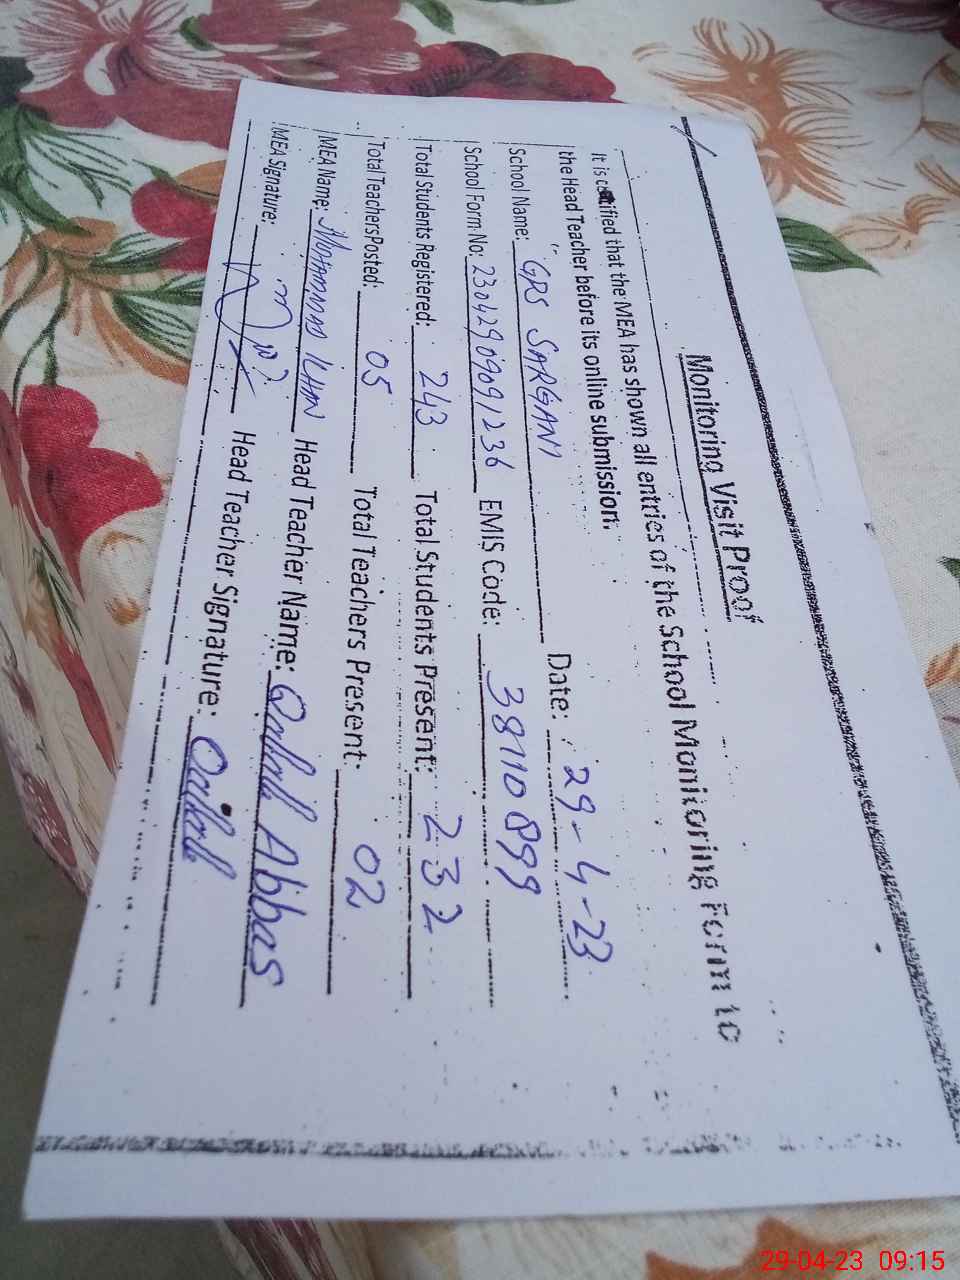 Monitoring Visit Proof
It is certified that the MEA has shown all entries of the School Monitoring Form to
the Head Teacher before its online submission.
School Name: GPS SARGANI Date: 29-4-23
School Form No: 23042909091236 EMIS Code: 38110899
Total Students Registered: 243 Total Students Present: 232
Total Teachers Posted: 05 Total Teachers Present: 02
MEA Name: MUHAMMAD KHAN Head Teacher Name: Abbas
MEA Signature: Head Teacher Signature:
29-04-23 09:15